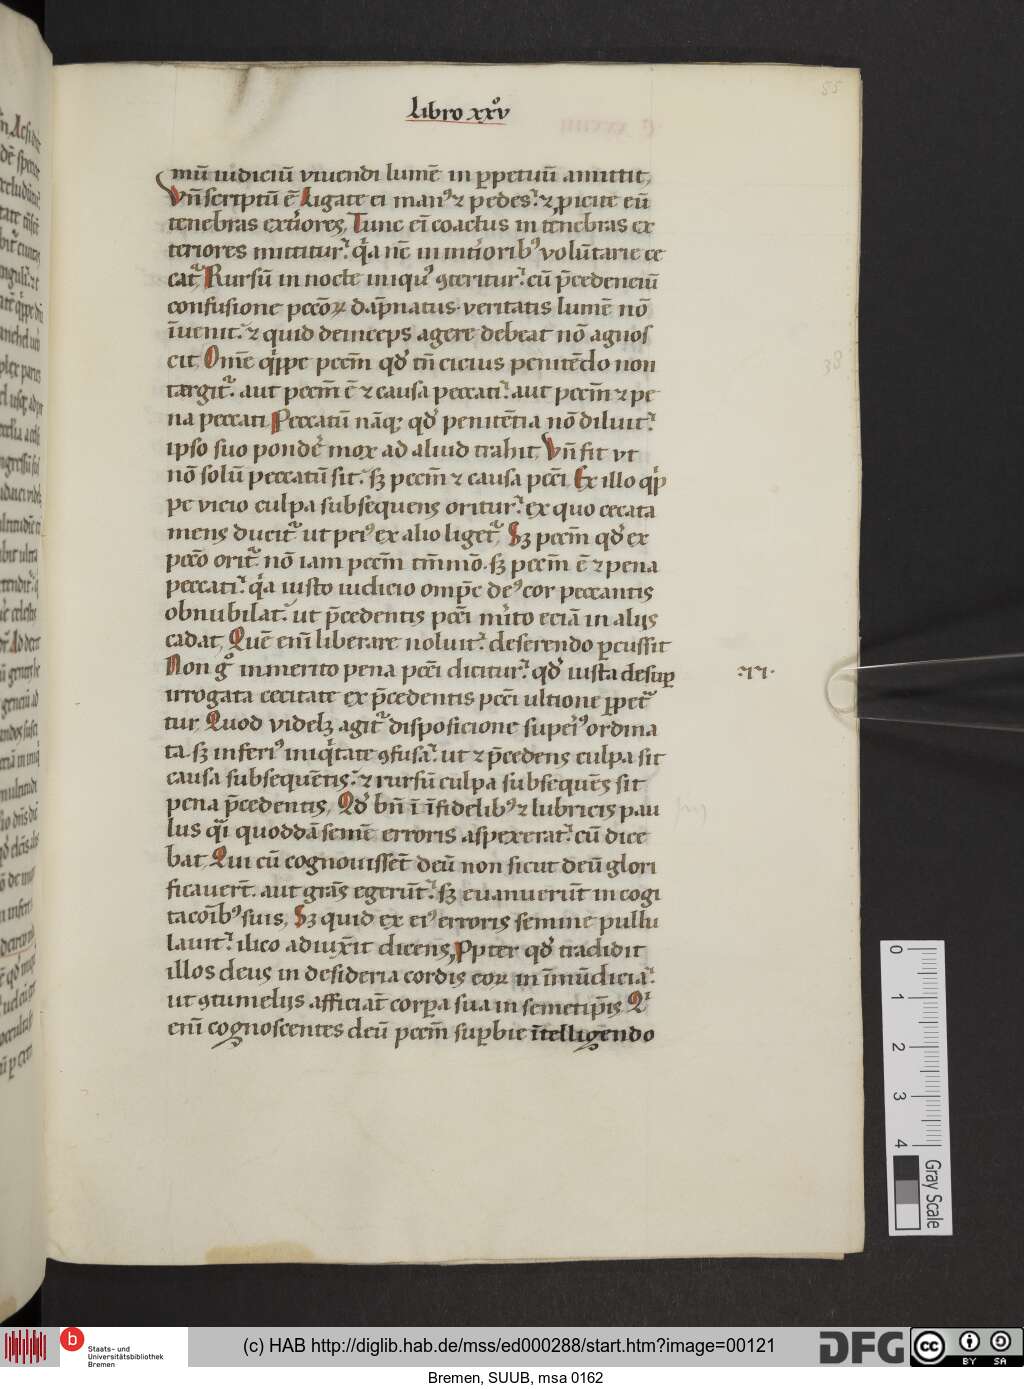 libro xxv̊
mū iudiciū viuendi lumē in ꝑpetuū amittit,
Vn̄ scriptū ē Ligate ei manꝰ ⁊ pedes. ⁊ ꝓicite eū
tenebras exteriores, Tunc em̄ coactus in tenebras ex
teriores mittitur. qͥa nc̄ in interiorib voluntarie ce
catᷣ, Rursū in nocte iniquꝰ ꝯteritur. cū p̄cedenciū
confusione pcc̄oꝝ dāpnatus. veritatis lumē nō
īuenit. ⁊ quid deinceps agere debeat nō agnos
cit, Om̄e qͥppe pccm̄ qd̓ tn̄ cicius penitēdo non
targitᷣ. aut pccm̄ ē ⁊ causa peccati. aut pccm̄ ⁊ pe
na peccati, Peccatū nāqꝫ qd̓ penitētia nō diluit.
ipso suo ponde mox ad aliud trahit, Vn̄ fit vt
nō solū peccatū sit. sꝫ pccm̄ ⁊ causa pccī, Ex illo qͥp
pe vicio culpa subsequens oritur. ex quo cecata
mens ducitᷣ ut peiꝰ ex alio ligetᷣ, Sꝫ pccm̄ qd̓ ex
pcc̄o oritᷣ nō iam pccm̄ tm̄mō. sꝫ pccm̄ ē ⁊ pena
peccati. qͥa iusto iudicio omp̄e deꝰ cor peccantis
obnubilat. ut p̄cedentis pccī mito eciā in alijs
cadat, Quē em̄ liberare noluit. deserendo ꝑcussit
Non gͦ inmerito pena pccī dicitur. qd̓ iusta desuꝑ
irrogata cecitate ex p̄cedentis pccī ultione ꝑpetᷣ
tur, Quod videlꝫ agitᷣ disposicione superiꝰ ordina
ta. sꝫ inferiꝰ iniqͥtate ꝯfusa. ut ⁊ p̄cedens culpa sit
causa subsequētis. ⁊ rursū culpa subsequēs sit
pena p̄cedentis, Qd̓ bn̄ ī īfidelibꝰ ⁊ lubricis pau
lus qͥi quoddā semē erroris aspexerat. cū dice
bat, Qui cū cognouisset̄ deū non sicut deū glori
ficauert̄. aut gras̄ egerūt. sꝫ euanuerūt in cogi
tacoībꝰ suis, Sꝫ quid ex eiꝰ erroris semine pullu
lauit. ilico adiuxīt dicens, Ꝓpter qd̓ tradidit
illos deus in desideria cordis eoꝝ in īmūdicia.
ut ꝯtumelijs afficiāt corꝑa sua in semetip̄is, Q
em̄ cognoscentes deū pccm̄ suꝑbie ītelligendo
.II.
55
38
0
1
2
3
4
Gray Scale
b
Staats- und
Universitätsbibliothek
Bremen
(c) HAB http://diglib.hab.de/mss/ed000288/start.htm?image=00121
DFG
cc
BY SA
Bremen, SUUB, msa 0162